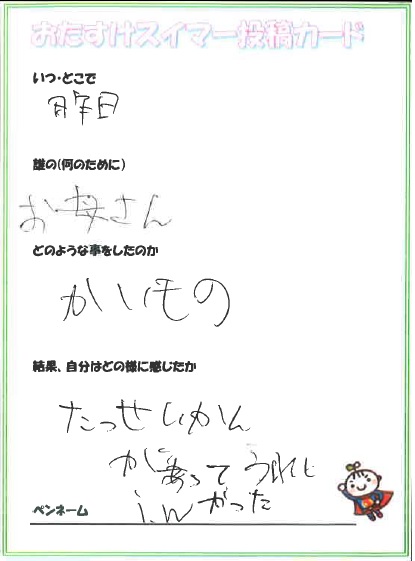 おたすけスイマー投稿カード
いつ・どこで
昨日
誰の(何のために)
お母さん
どのような事をしたのか
かいもの
結果、自分はどの様に感じたか
たっせいかん
があってうれし
かった
ペンネーム